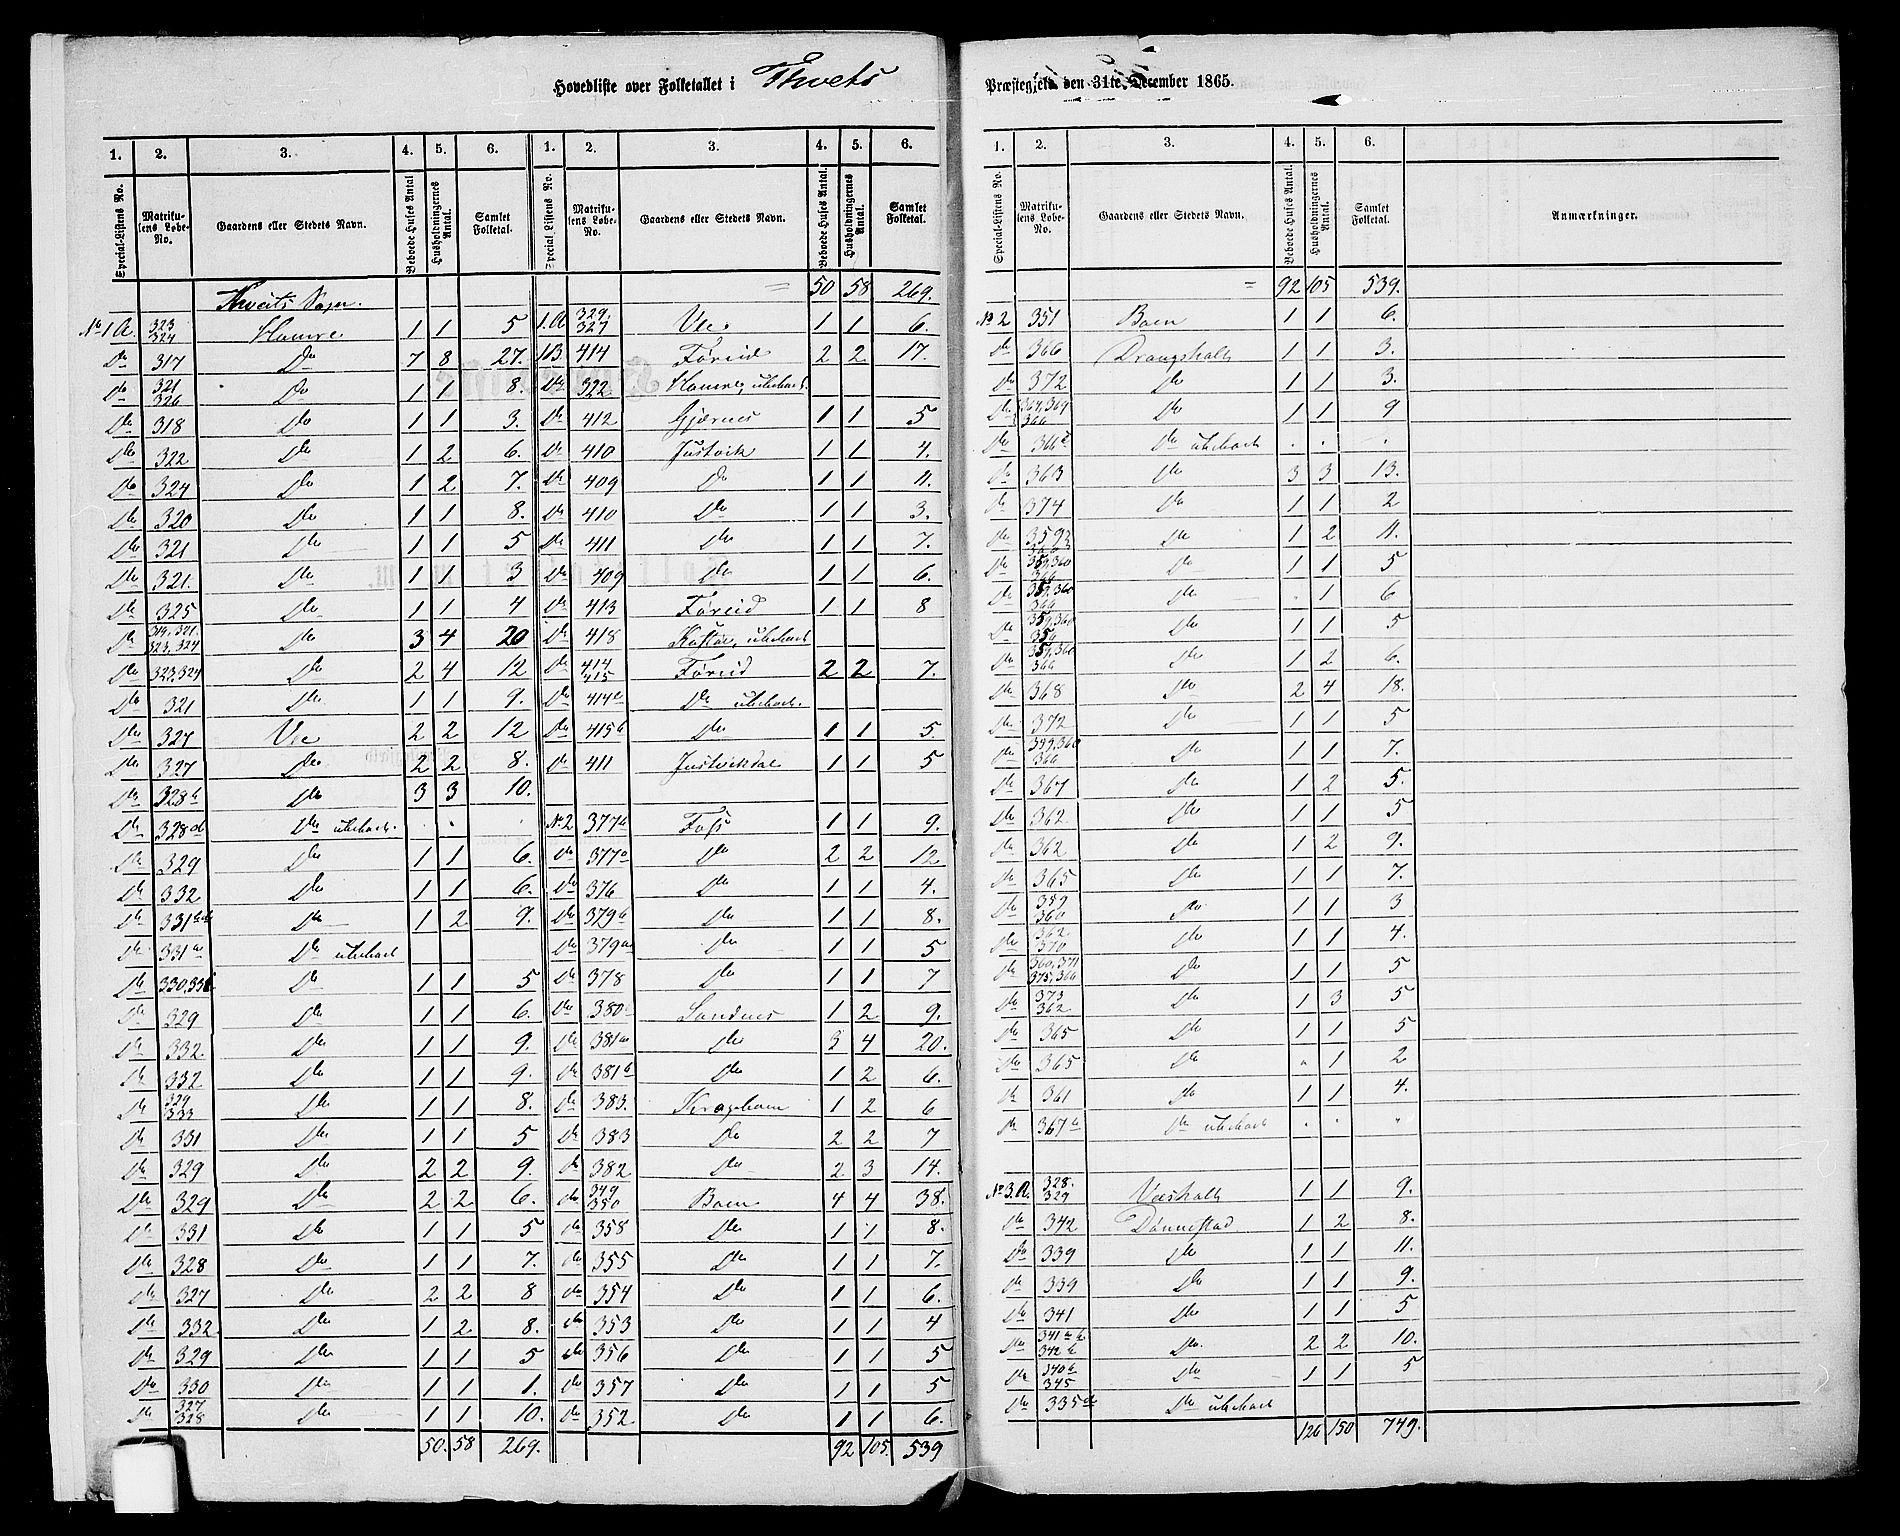 Hovedliste over Folketallet i Thveits
Præstegjeld den 31te December 1865.
1. 2. 3. 4. 5. 6. 1. 2. 3. 4. 5. 6.
Special-Listens No. Matrikulens Løbe-No. Gaardens eller Stedets Navn. Beboede Huses Antal Husholdningernes Antal. Samlet Folketal. Special Listens No. Matrikulens Løbe-No. Gaardens eller Stedets Navn. Beboede Huses Antal. Husholdningernes Antal. Samlet Folketal.
Thveits Sogn.
No 1 A. 323 324 Hamre 1 1 5
Do 317 Do 7 8 27.
Do 321 326 Do 1 1 8.
Do 318 Do 1 1 3.
Do 322 Do 1 2 6.
Do 324 Do 1 2 7.
Do 320 Do 1 1 8.
Do 321 Do 1 1 5
Do 321. Do 1 1 3
Do 325 Do 1 1 4
Do 319, 321. 323, 324 Do 3 4 20
Do 323, 324 Do 2 4 12
Do 321 Do 1 1 9.
Do 327 Vee 2 2 12
Do 327 Do 2 2 8.
Do 328 b Do 3 3 10.
Do 328 Do ubeboet. . . .
Do 329 Do 1 1 6.
Do 332 Do 1 1 6.
Do 331 Do 1 2 9.
Do 331 a Do ubeboet
Do 330, 331 Do 1 1 5
Do 329 Do 1 1 6.
Do 332. Do 1 1 9.
Do 332 Do 1 1 9.
Do 329 333 Do 1 1 8.
Do 331 Do 1 1 5
Do 329 Do 2 2 9.
Do 329 Do 2 2 6.
Do 331 Do 1 1 5
Do 328 Do 1 1 7.
Do 327 Do 2 2 8
Do 332 Do 1 2 8.
Do 329 Do 1 1 5
Do 330 Do 1 1 1.
Do 327 328 Do 1 1 10.
50. 58 269.
= 50 58 269.
1. A 329. 327 Vee 1 1 6.
1 B 414 Føreid 2 2 17.
Do 322 Hamre, ubeboet.
Do 412 Gjærnes 1 1 5
Do 410 Justvik 1 1 4.
Do 409 Do 1 1 11.
Do 410 Do 1 1 3.
Do 411 Do 1 1 7.
Do 409 Do 1 1 6.
Do 413 Føreid 1 1 8
Do 418 ubeboet
Do 414 415 Føreid 2 2 7.
Do 414 a Do ubeboet.
Do 415 b Do 1 1 5.
Do 411 Justvikdal 1 1 5
No 2 377 b Foss 1 1 9.
Do 377 a Do 2 2 12
Do 376 Do 1 1 4.
Do 379 b Do 1 1 8.
Do 379 a Do 1 1 5
Do 378 Do 1 1 7
Do 380 Sandnes 1 2 9.
Do 381 a Do 3 4 20.
Do 381 b Do 1 2 6.
Do 383. Kragebom 1 2 6
Do 383 Do 2 2 7
Do 382 Do 2 3 14.
Do 349 350 Boen 4 4 38.
Do 358 Do 1 1 8.
Do 355 Do 1 1 7.
Do 354 Do 1 1 6.
Do 353 Do 1 1 4
Do 356 Do 1 1 5
Do 357 Do 1 1 5
Do 352 Do 1 1 6.
92 105. 539
1. 2. 3. 4. 5. 6.
Special-Listens No. Matrikulens Løbe-No. Gaardens eller Stedets Navn. Beboede Huses Antal. Husholdningernes Antal. Samlet Folketal. Anmærkninger.
= 92 105 539.
No 2 351 Boen 1 1 6.
Do 366 Drangsholt 1 1 3.
Do 372 Do 1 1 3.
Do 364, 369 366 Do 1 1 9
Do 366 Do ubeboet . . .
Do 363 Do 3 3 13.
Do 374 Do 1 1 2
Do 359 366 Do 1 2 11.
Do 359, 360 366 Do 1 1 5
Do 359, 360 366 Do . 1 6
Do 359, 360 Do 1 1 5
Do 359, 360 366 Do 1 2 6.
Do 368 Do 2 4 18.
Do 372 Do 1 1 5
Do 359, 360 366 Do 1 1 7.
Do 367 Do 1 2 5.
Do 362 Do 1 1 5
Do 362 Do 1 2 9.
Do 365 Do 1 1 7.
Do 359 360 Do 1 1 3
Do 362. 370 Do 1 1 4.
Do 360, 371 375, 366 Do 1 1 5
Do 373 362 Do 1 3 5
Do 365 Do 1 1 5
Do 365 Do " 1 2
Do 361 Do 1 1 4.
Do 367 b Do ubeboet . . "
No 3. A. 328. 329 Væsholt 1 1 9.
Do 342 Dønnestad 1 2 8.
Do 339 Do 1 1 11.
Do 339 Do 1 1 9.
Do 341 Do 1 1 5
Do 341 342 b Do. 2 2 10.
Do 340 b 345 Do 1 1 5
Do 335 Do ubeboet
126 150 749.